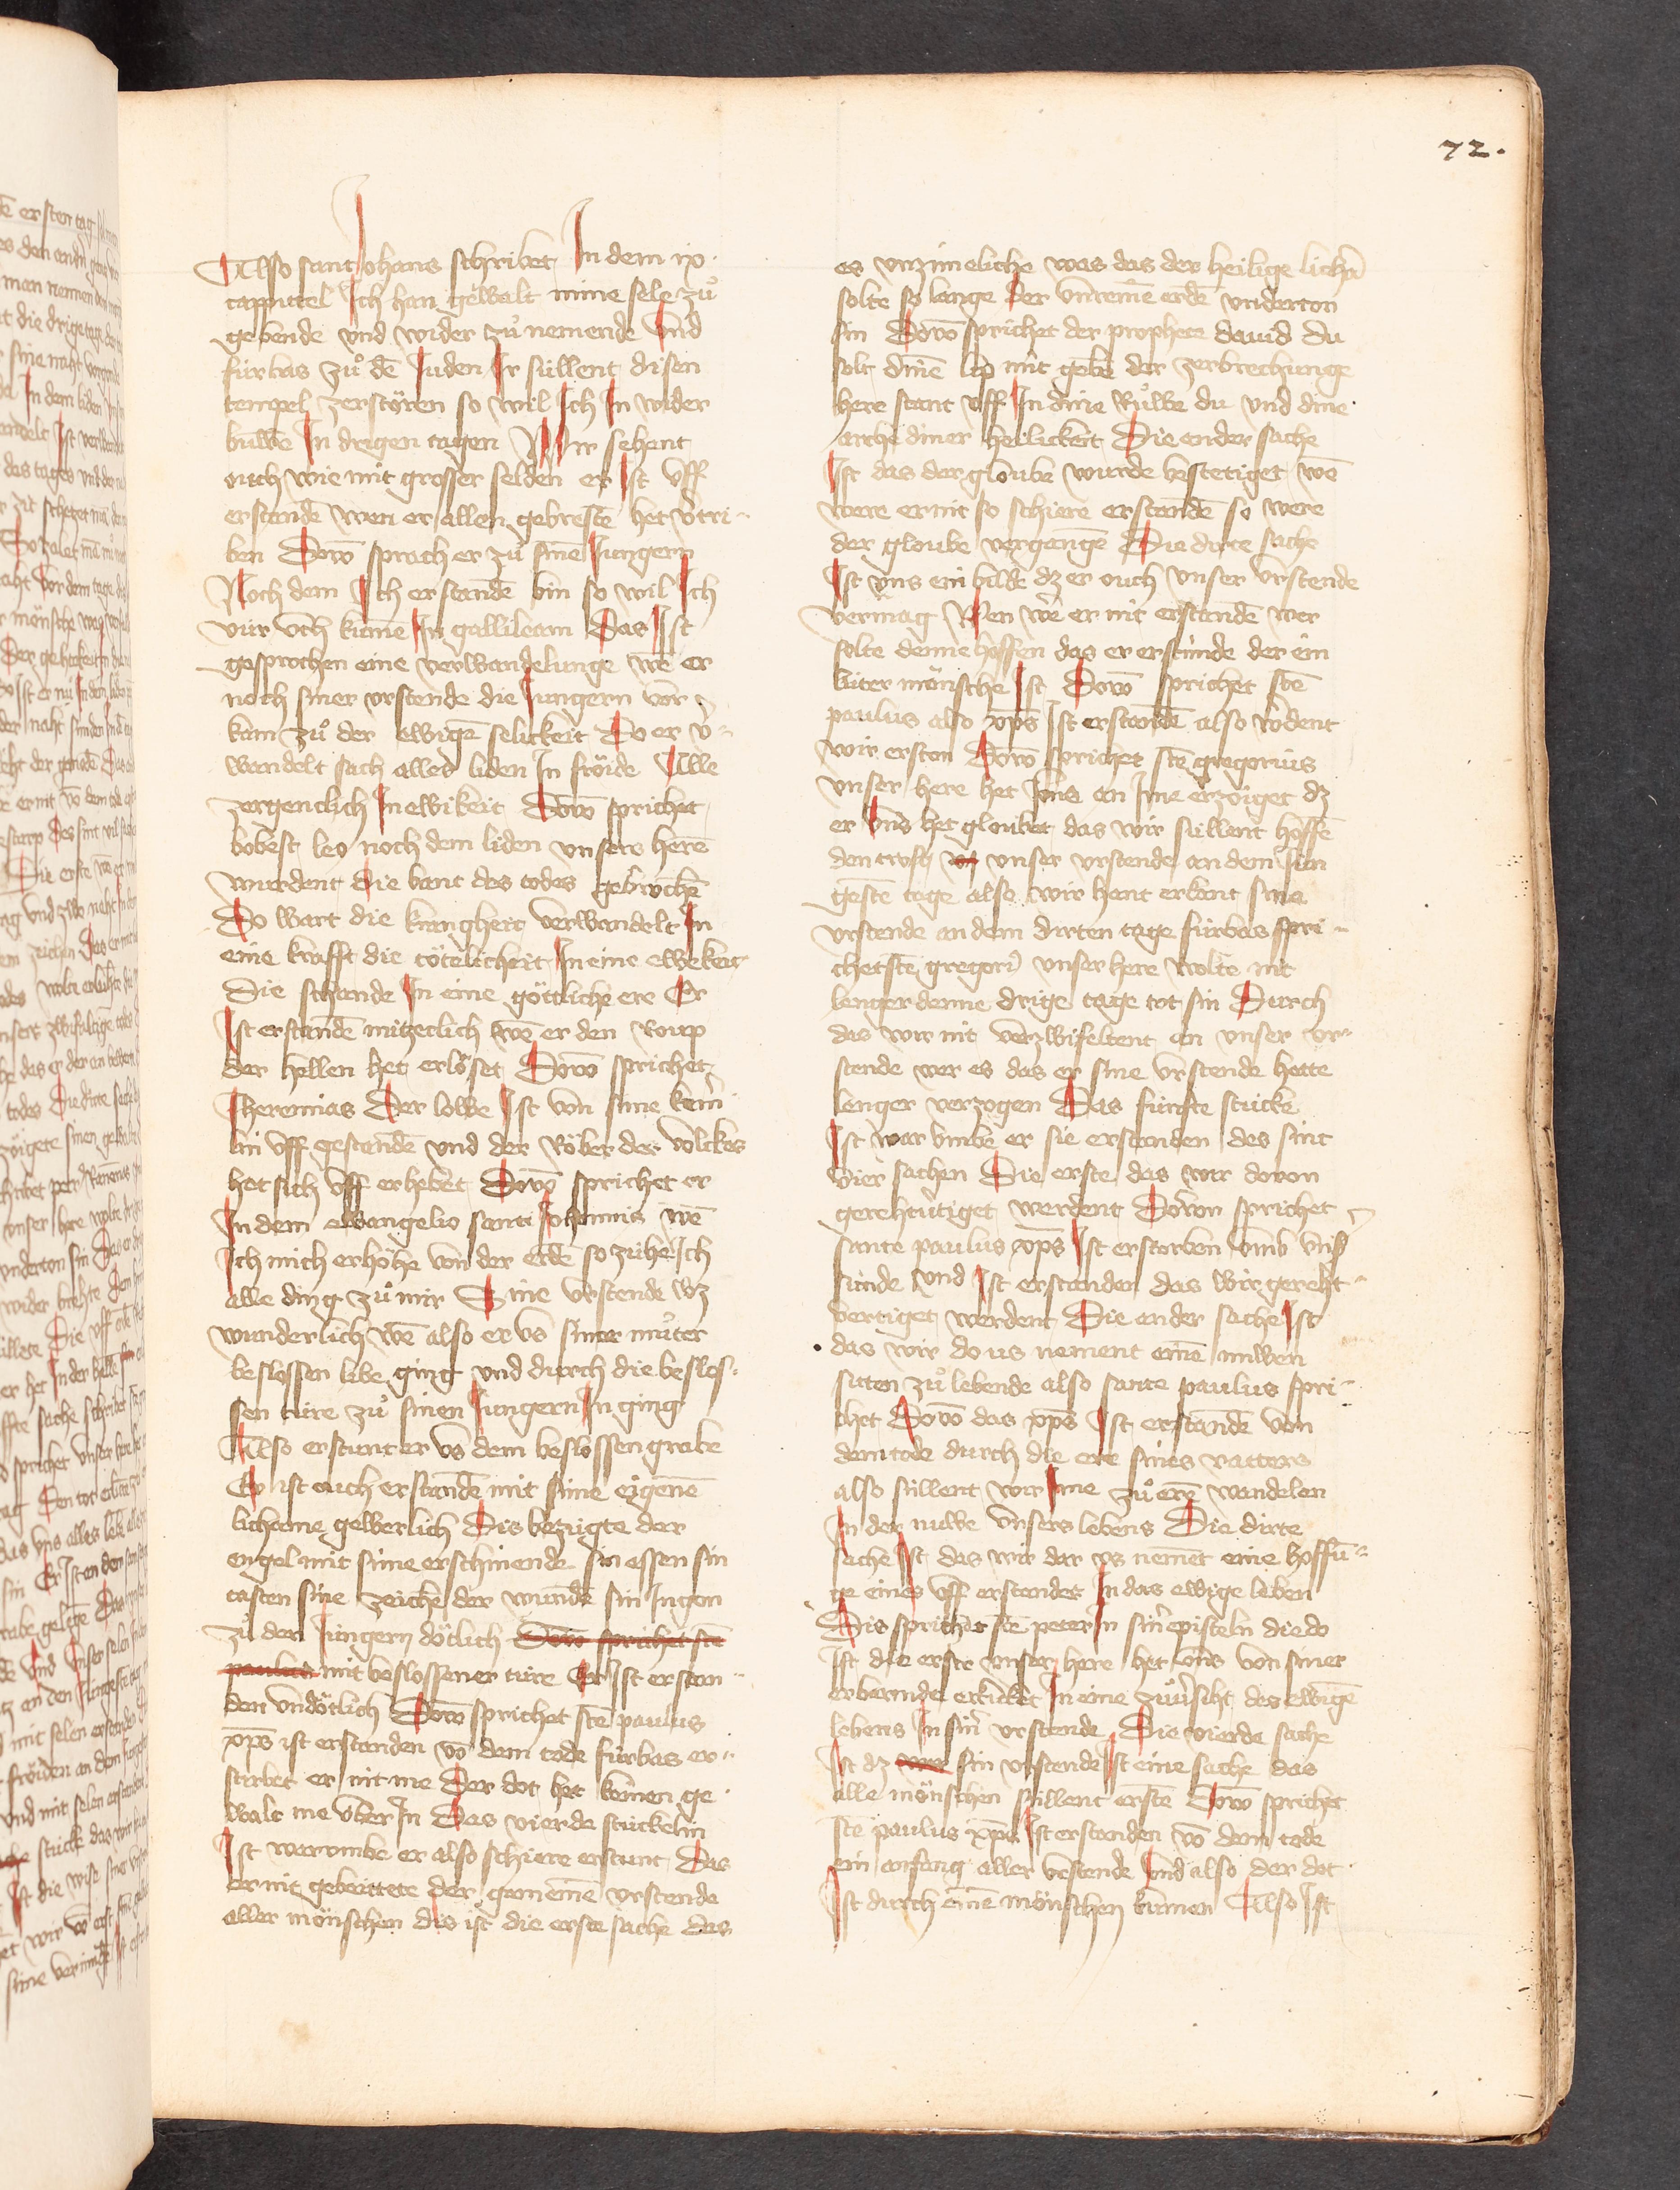 72.
Also sant Johans schribet In dem ix.
cappittel Ich han gewalt mine sele zuͦ
gebende vnd wider zuͦ nemende Vnd
fürbas zuͦ dē Juden Ir süllent disen
tempel zerstören so wil Ich In wider
buwē In drigen tagen Wir sehent
ouch wie mit grosser selden er Ist vff
erstandē wen er allen gebrestē het v̄tri-
ben Dovō sprach er zuͦ sinē Jungern
Noch dem Ich erstandē bin so wil Ich
vür vch kumē In gallileam Das Ist
gesprochen eine verwandelunge wē er
noch siner vrstende die Jungern vor
kam zuͦ der ewigē selickeit Do er v̄-
wandelt sach alles liden In fröide Alle
zergenclich In ewikeit Dovō sprichet
bobest leo noch dem liden vnsers herē
wurdent die bant des todes gebrochē
Do wart die krangheit verwandelt In
eine krafft die tötelicheit In eine ewekeit
Die schande In eine göttliche ere Er
Ist erstandē nützclich wē er den Roup
der hellen het erlöset Dovō sprichet
Jheremias Der löwe Ist von sime kem̄
lin vff gestandē vnd der Röber des volckes
het sich vff erhebet Dovō sprichet er
In dem ewangelio sancti Johannis wē
Ich mich erhöhe von der erdē so zühe Ich
alle ding zuͦ mir Sine vrstende wz
wunderlich wē also er vs siner muͦter
beslossen libe ging vnd durch die beslos-
sen türe zuͦ sinen Jungern In ging
Also erstunt er vs dem beslossen grabe
Er ist ouch erstandē mit sime eigenē
lichame gewerlich Dis bezügte der
engel mit sime erschinende sin essen sin
tasten sine zeichē der wundē sin In gon
zuͦ den Jungern dötlich Dovō sprichet stē
paulus mit beslossener türe Er Ist erstan-
den vndötlich Dovō sprichet stē paulus
xp̄s ist erstanden vō dem tode fürbas er-
stirbet er nit me Der dot het keinen ge-
walt me über In Das vierde stückelin
Ist warumbe er also schiere erstunt Das
er nit gebeittete der gemeinē vrstende
aller mönschen dis ist die erste sache das
es vnzimeliche was das der heilige lichā
solte so lange der vnreinē erdē vnderton
sin Dovō sprichet der prophete dauid du
solt dinē lip nit gebē der zerbrechunge
here stant vff In dine Ruͦwe du vnd dine
arche diner heilickeit Die ander sache
Ist das der gloube wurde bestetiget wē
were er nit so schiere erstandē so were
der gloube vergangē Die dirte sache
Ist vns ein bilde dz er ouch vnser vrstende
vermag Wen wē er nit erstandē wer
solte denne hoffen das er erstünde der ein
luter mönsche Ist Dovō sprichet stē
paulus also xp̄s Ist erstandē also w̄dent
wir erston Dovō sprichet stē gregorius
vnser here het vns an Ime erzöiget dz
er vns het gloubet das wir süllent hoffē
den trost vnser vrstende an dem Jun
gestē tage also wir hant erkant sine
vrstende an dem dirten tage fürbas spri-
chet stē gregori vnser here wolte nit
lenger denne drige tage tot sin Durch
das wir nit verzwifeltent an vnser vr-
stende wer es das er sine vrstende hette
lenger verzogen Das fünfte stücke
Ist war vmbe er sie erstanden des sint
vier sachen Die erste das wir dovon
gerehtv̄tiget werdent Dovon sprichet
sante paulus xp̄s Ist erstorben vmb vns̄
sünde vnd Ist erstanden das wir gereht-
vertiget werdent Die ander sache Ist
das wir do us nement einē nuwen
sitten zuͦ lebende also sante paulus spri-
chet Dovō das xp̄s Ist erstandē von
dem tode durch die ere sines vatters
also süllent wir Ime zuͦ erē wandelen
In der nuwe vnsers lebens Die dirte
sache Ist das wir dar vs nemēt eine hoffū-
ge eines vff erstandes In das ewige leben
Dis sprichet stē peter In sin̄ episteln die do
Ist die erste vnser here het vns von siner
erbermde erkücket In eine zuͦv̄siht des ewigē
lebens In sin̄ vrstende Die vierde sache
Ist dz sin vrstende Ist eine sache das
alle mönschen süllent erstē Dovō sprichet
stē paulus xp̄s Ist erstanden vō dem tode
ein anfang aller vrstende vnd also der dot
Ist durch einē mönschen kumen Also Ist